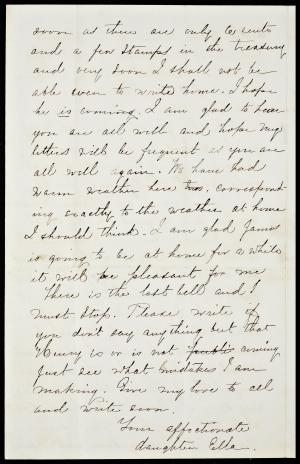 soon as there are only 6 cents
and a few stamps in the treasury
and very soon I shall not be
able even to write home. I hope
he is coming. I am glad to hear
you are all well and hope my
letters will be frequent as you are
all well again. We have had
warm weather here too, correspond-
ing exactly to the weather at home
I should think. I am glad James
is going to be at home for a while
it will be pleasant for me
There is the last bell and I
must stop. Please write if
you don't say anything but that
Henry is or is not coming
Just see what mistakes I am
making. Give my love to all
and write soon.
Your affectionate
daughter Ella.